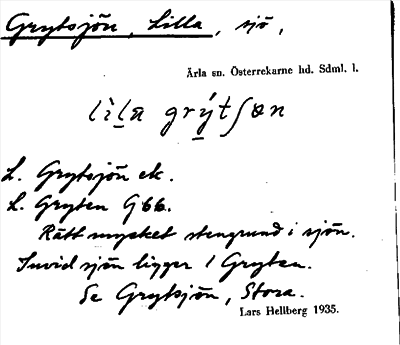 Grytsjön, Lilla, sjö,
Ärla sn. Österrekarne hd. Sdml. l.
lìla grýtʃøn
L. Grytsjön ek.
L. Gryten G66.
Rätt mycket stengrund i sjön.
Invid sjön ligger 1 Gryten.
Se Grytsjön, Stora.
Lars Hellberg 1935.